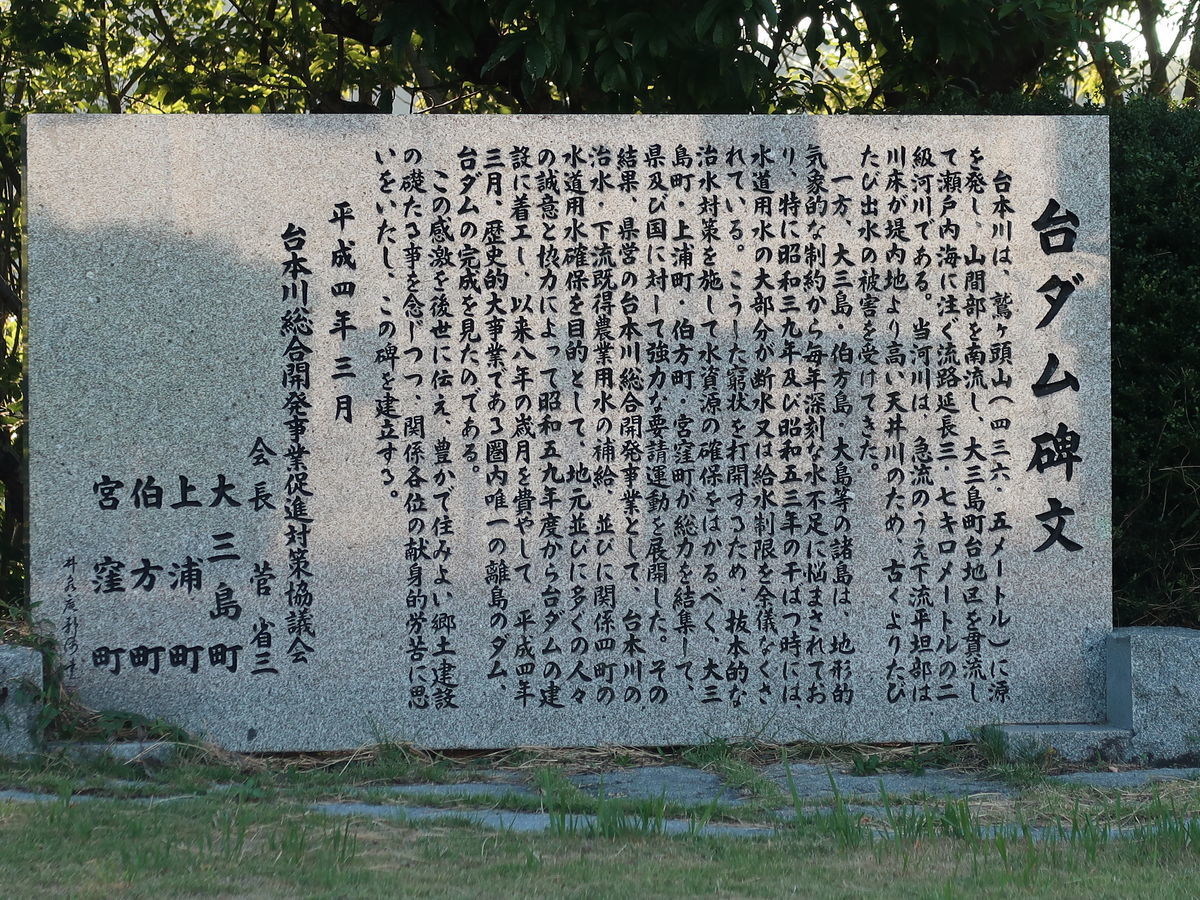 台ダム碑文
台本川は、鷲ヶ頭山(四三六・五メートル)に源
を発し、山間部を南流し、大三島町台地区を貫流し
て瀬戸内海に注ぐ流路延長三・七キロメートルの二
級河川である。当河川は、急流のうえ下流平坦部は
川床が堤内地より高い天井川のため、古くよりたび
たび出水の被害を受けてきた。
一方、大三島・伯方島・大島等の諸島は、地形的
気象的な制約から毎年深刻な水不足に悩まされてお
り、特に昭和三九年及び昭和五三年の干ばつ時には、
水道用水の大部分が断水又は給水制限を余儀なくさ
れている。こうした窮状を打開するため、抜本的な
治水対策を施して水資源の確保をはかるべく、大三
島町・上浦町・伯方町・宮窪町が総力を結集して、
県及び国に対して強力な要請運動を展開した。その
結果、県営の台本川総合開発事業として、台本川の
治水・下流既得農業用水の補給、並びに関係四町の
水道用水確保を目的として、地元並びに多くの人々
の誠意と協力によって昭和五九年度から台ダムの建
設に着工し、以来八年の歳月を費やして、平成四年
三月、歴史的大事業である圏内唯一の離島のダム、
台ダムの完成を見たのである。
この感激を後世に伝え、豊かで住みよい郷土建設
の礎たる事を念じつつ、関係各位の献身的労苦に思
いをいたし、この碑を建立する。
平成四年三月
台本川総合開発事業促進対策協議会
会長 菅 省三
大三島町
上浦町
伯方町
宮窪町